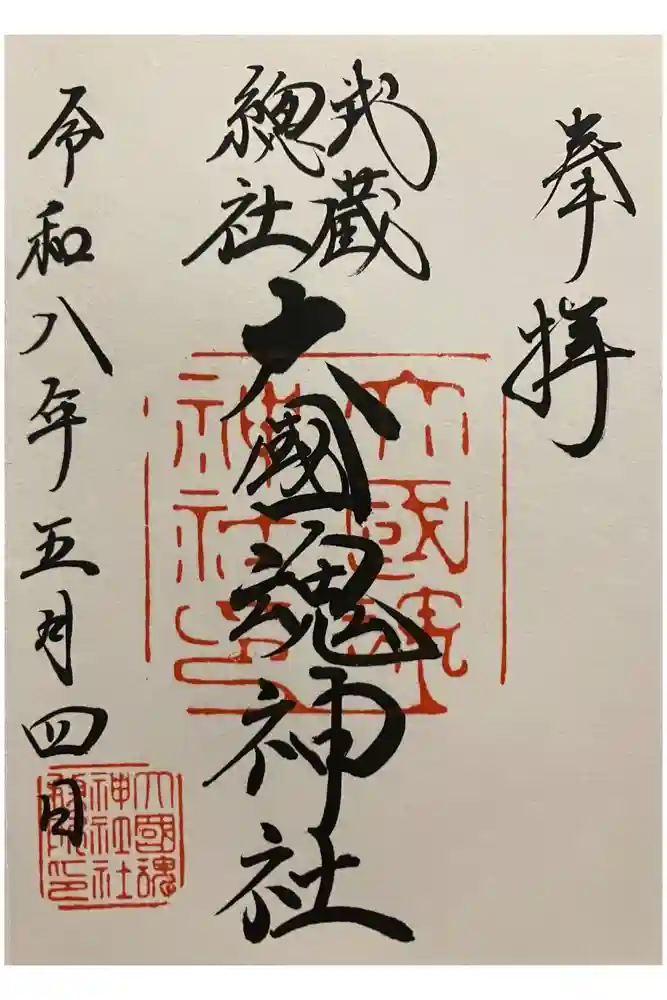 奉拝
武蔵
總社
大國魂神社
令和八年五月四日
大國魂
神社印
大國魂
神社社